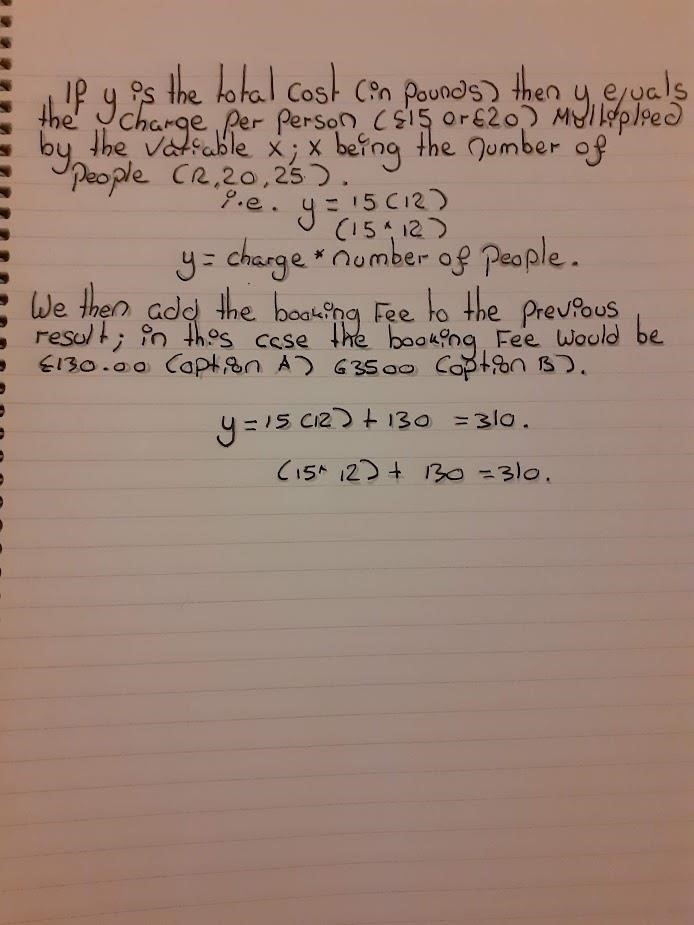 If y is the total cost (in pounds) then y equals
the charge per person (£15 or £20) Multiplied
by the variable x; x being the number of
people (12, 20, 25).
i.e. y = 15 (12)
(15 * 12)
y = charge * number of people.
We then add the booking Fee to the previous
result; in this case the booking Fee would be
£130.00 (option A) £3500 (option B).
y = 15 (12) + 130 = 310.
(15 * 12) + 130 = 310.